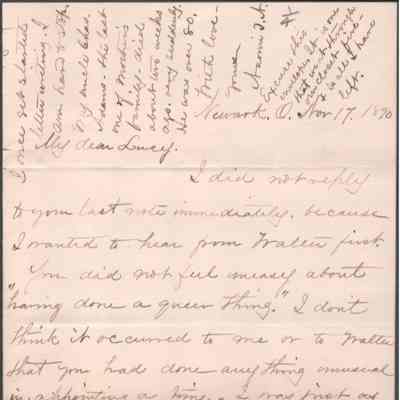 Newark, O. Nov 17, 1890
My dear Lucy.
I did not reply
to your last note immediately, because
I wanted to hear from Walter first.
You did not feel uneasy about
"having done a queer thing." I don't
think it occurred to me or to Walter
that you had done anything unusual
in appointing a time. I was just as
I once get started
letter writing, I
am hard to stop.
My uncle Chas.
the last
one of Mother's
family - died
about two weeks
ago, very suddenly.
He was over 80.
With love -
Yours
Excuse this
It is one
that went through
our closet fire -
is all I have
left.